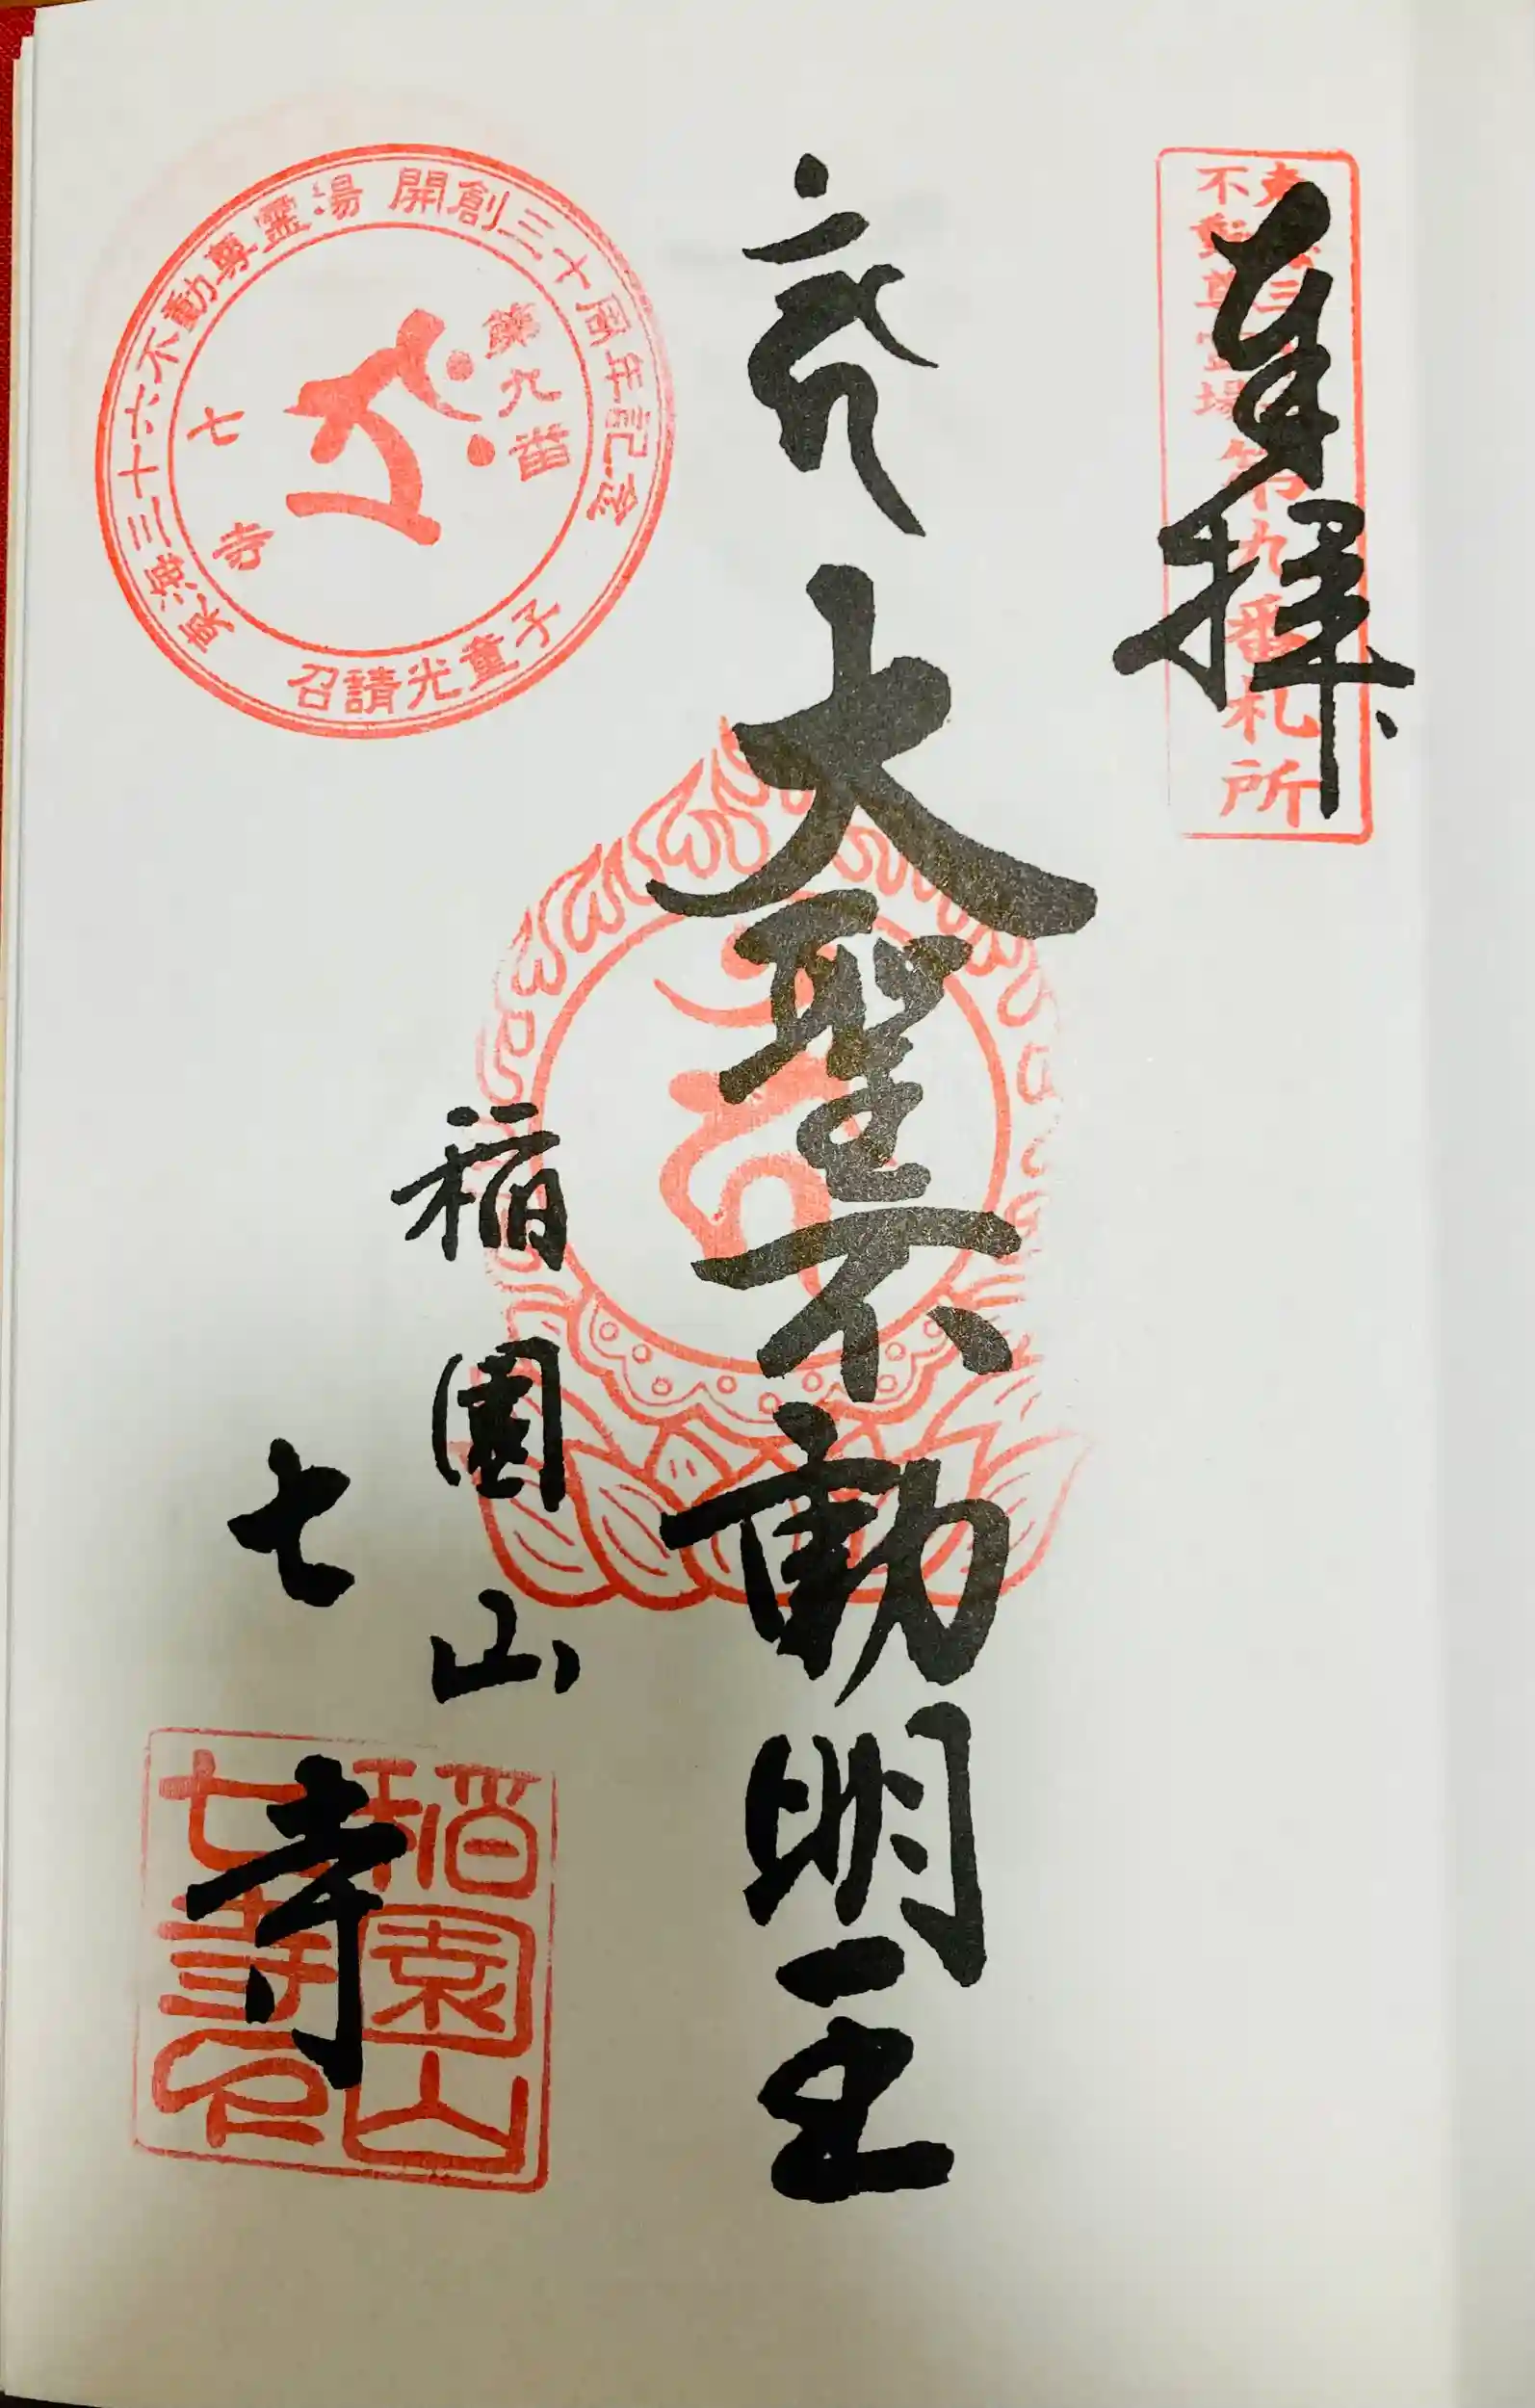 奉拝
不動尊霊場
第九番札所
大聖不動明王
稲園山
七寺
東海三十六不動尊霊場 開創三十周年記念
第九番
七寺
召請光童子
稲園山
七寺印